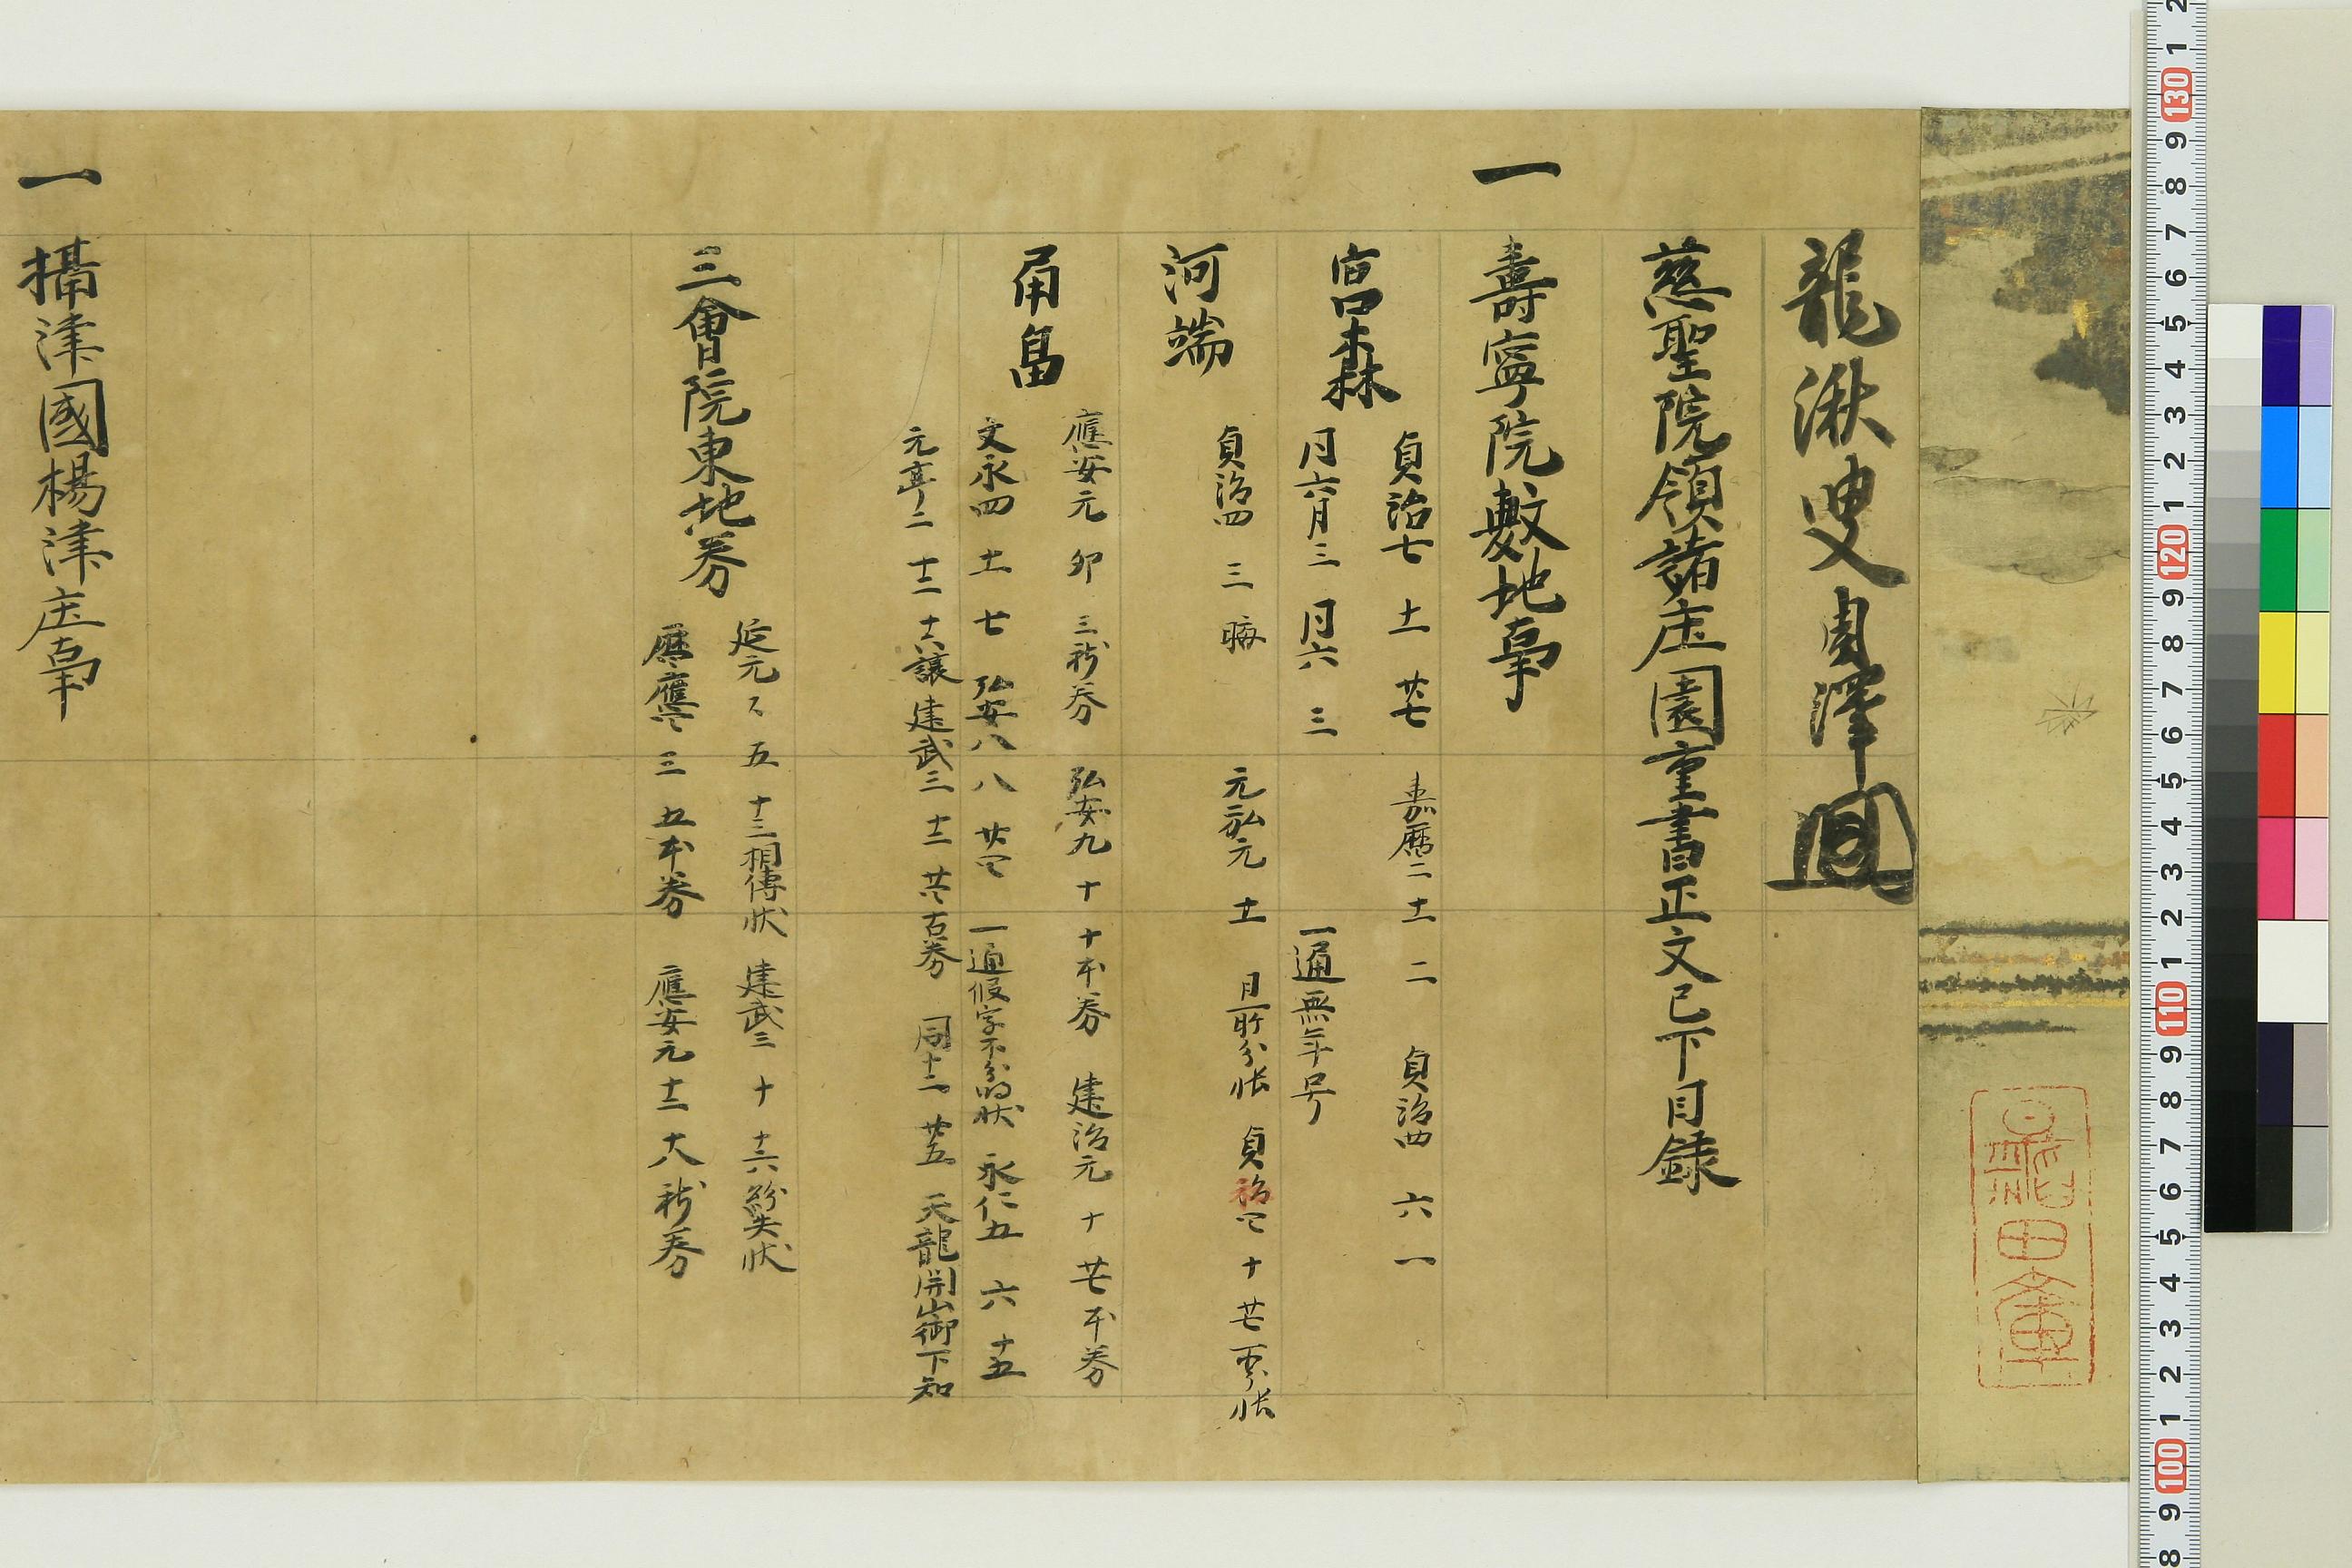 龍湫叟周澤
慈聖院領諸庄園重書正文已下目録
一 壽寧院敷地事
富森 貞治七 十一 廿七 嘉暦二 十二 二 貞治四 六 一
月六 三 一通無年号
河端 貞治四 三 晦 元弘元 十一 貞治四 十 廿七
角畠 應安元 卯 三 新券 弘安九 十 十 本券 建治元 十 廿七 本券
文永四 十一 七 弘安八 八 廿四 一通假字不分明状 永仁五 六 十五
元亨二 十二 十六 譲 建武三 十二 廿六 古券 同十二 廿五 天龍開山御下知
三會院東地券 延元々 五 十三 相傳状 建武三 十 十六 紛失状
暦應四 三 五 本券 應安元 十二 八 新券
一 攝津國楊津庄事